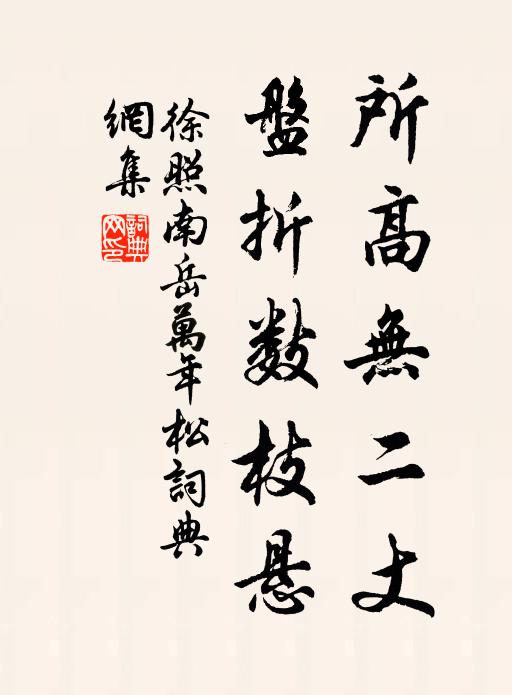 所高無二丈
盤折数枝悬
徐照南岳萬年松詞典
網集
詞典
网印